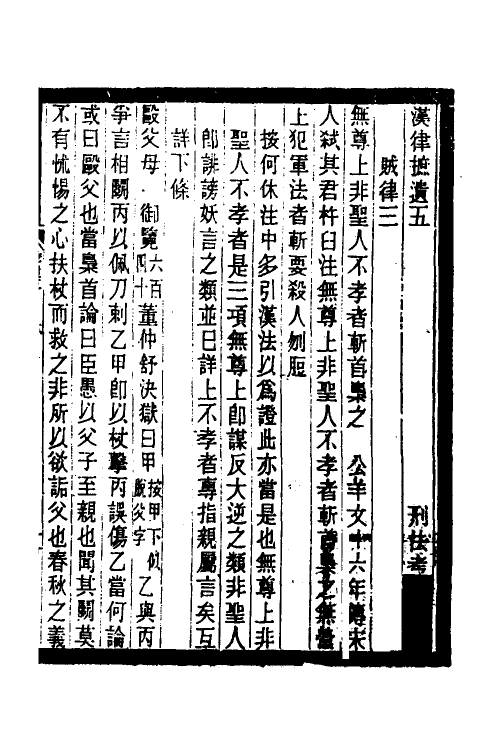 漢律摭遺五 刑法考
賊律三
無尊上非聖人不孝者斬首梟之 公羊文十六年傳宋
人弑其君杵臼注無尊上非聖人不孝者斬首梟之無營
上犯軍法者斬要殺人刎脰
按何休注中多引漢法以爲證此亦當是也無尊上非
聖人不孝者是三項無尊上卽謀反大逆之類非聖人
卽誹謗妖言之類並已詳上不孝者專指親屬言矣互
詳下條
毆父母 御覽六百四十董仲舒決獄曰甲按甲下似脫父字乙與丙
爭言相鬭丙以佩刀刺乙甲卽以杖擊丙誤傷乙當何論
或曰毆父也當梟首論曰臣愚以父子至親也聞其鬭莫
不有怵惕之心扶杖而救之非所以欲詬父也春秋之義